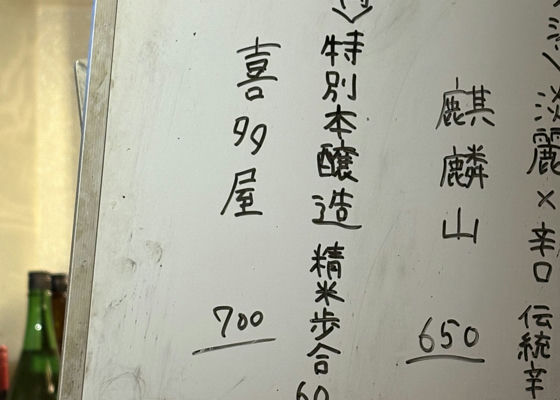 淡麗×辛口 伝統辛
麒麟山 650
特別本醸造 精米歩合 60
喜多屋 700